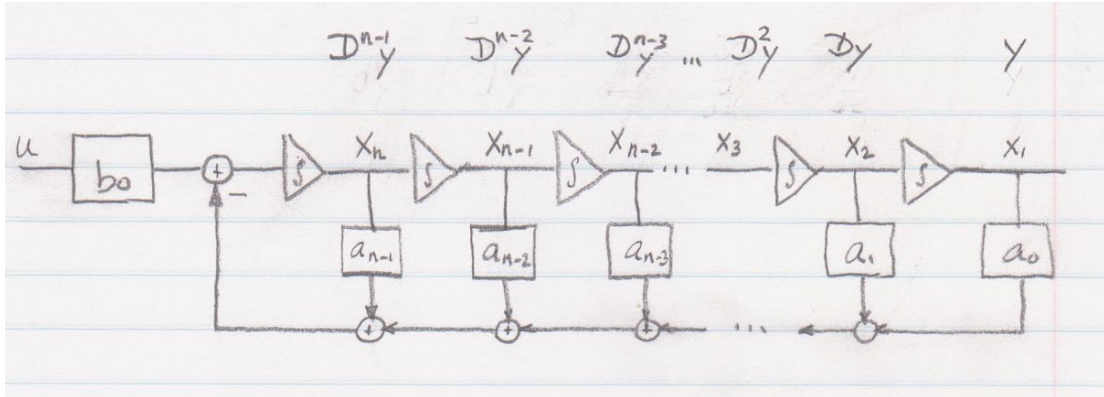 Dⁿ⁻¹y Dⁿ⁻²y Dⁿ⁻³y ... D²y Dy y
u b₀ + − ∫ xₙ ∫ xₙ₋₁ ∫ xₙ₋₂ ... x₃ ∫ x₂ ∫ x₁
aₙ₋₁ aₙ₋₂ aₙ₋₃ a₁ a₀
+ + + ...